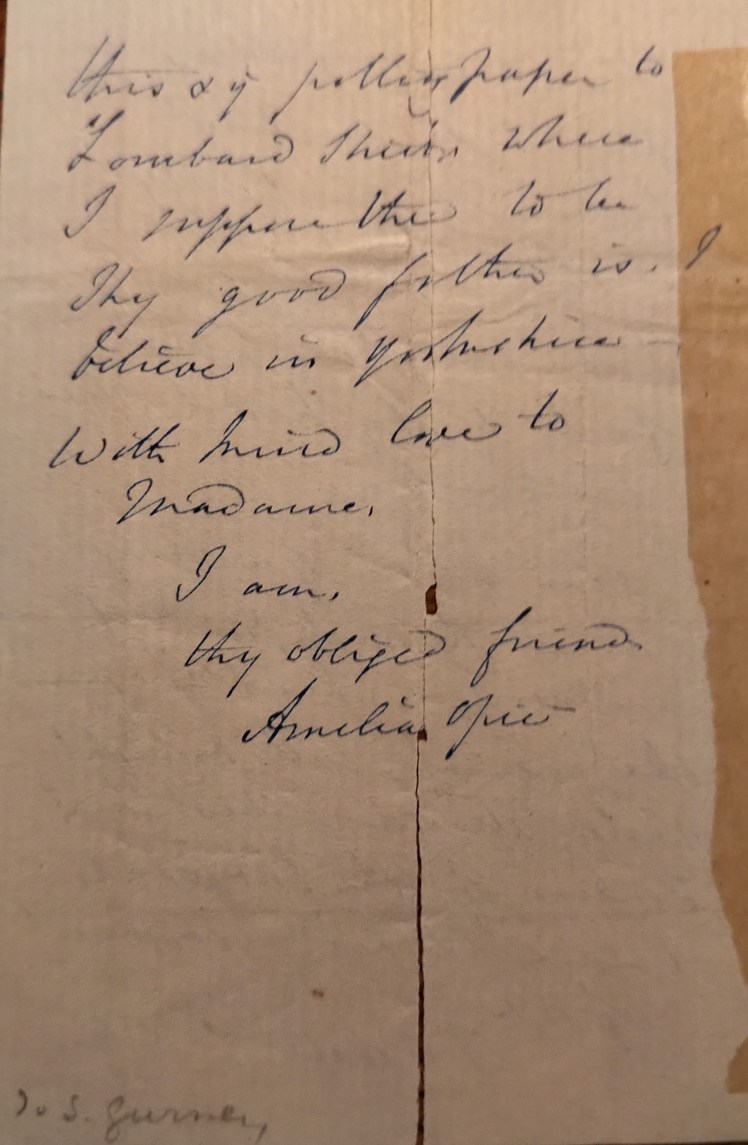 this & ye polling paper to
Lombard Street, where
I suppose thee to be
Thy good father is. I
believe in Yorkshire
With kind love to
Madame,
I am,
thy obliged friend
Amelia Opie
To S. Gurney,